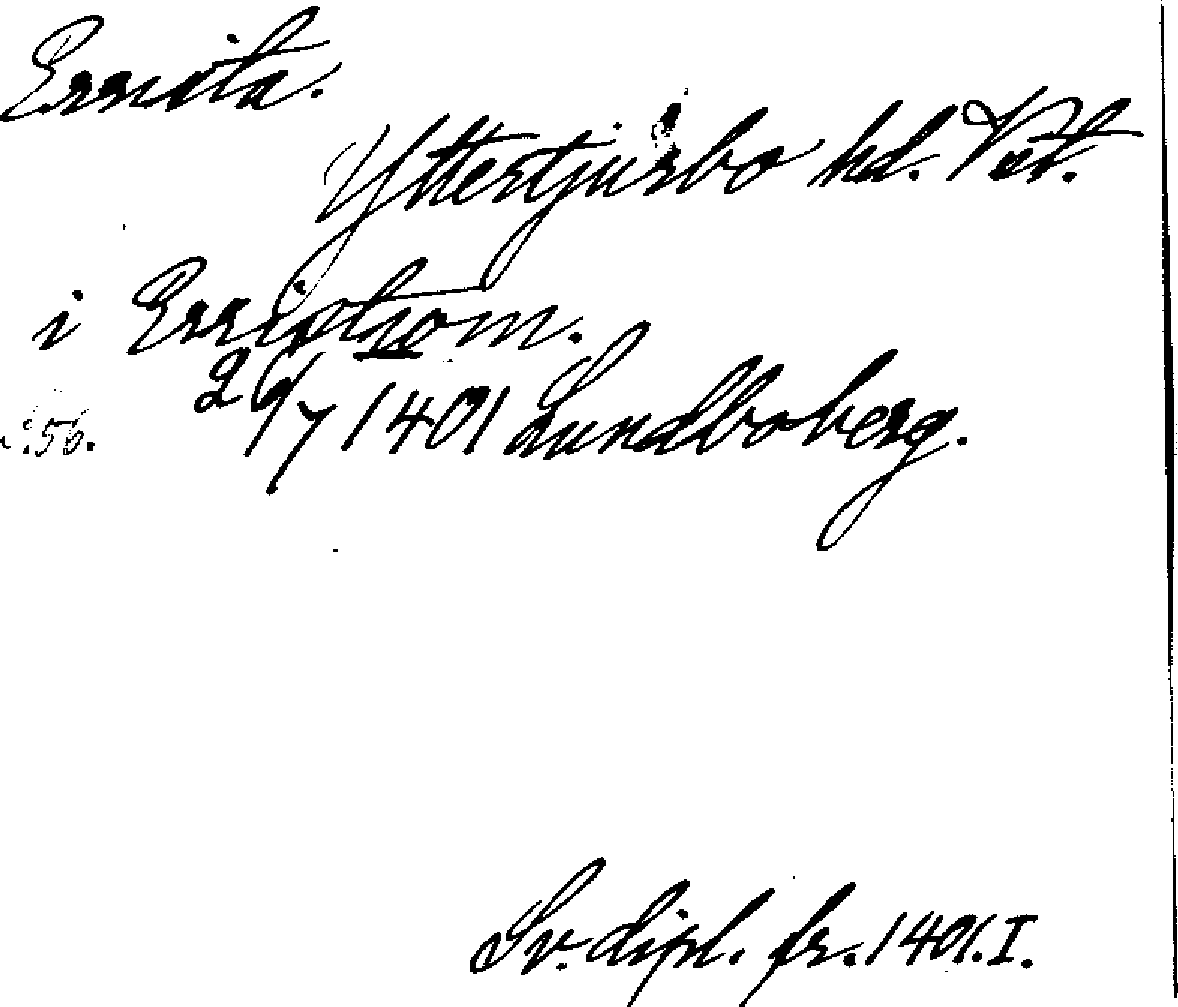 Ersnäta.
Yttertjurbo hd. Vst.
i Ersisthom.
29/7 1401 Lundboberg.
s. 56.
Sv. dipl. fr. 1401. I.